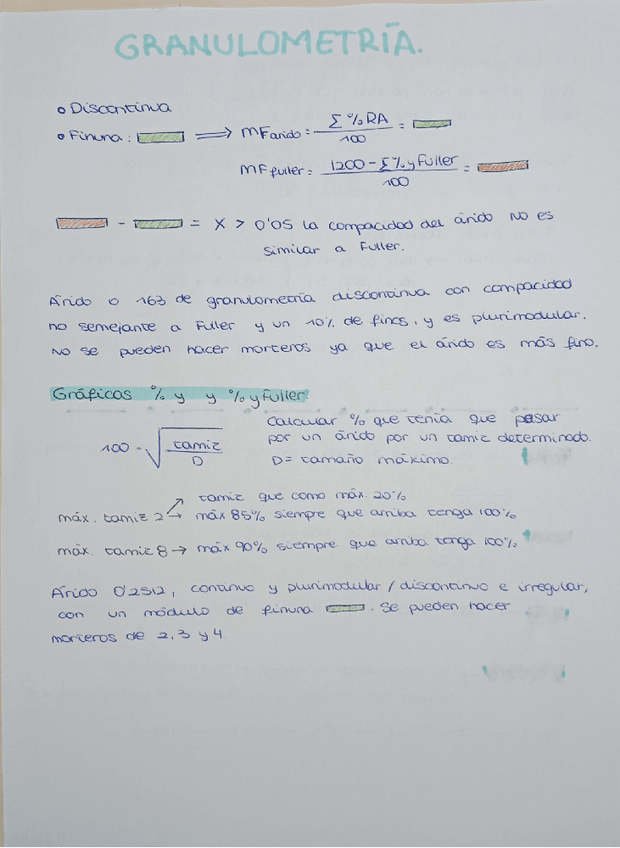 GRANULOMETRÍA.
• Discontinua
• Finura: ⟹ MFárido = Σ %RA / 100 =
MFfuller = 1200 - Σ % y Fuller / 100 =
- = X > 0'05 la compacidad del árido NO es
similar a Fuller.
Árido 0 163 de granulometría discontinua con compacidad
no semejante a Fuller y un 10% de finos, y es plurimodular.
No se pueden hacer morteros ya que el árido es más fino.
Gráficos % y y % y Fuller.
100 · √(tamiz / D)
Calcular % que tenía que pasar
por un árido por un tamiz determinado.
D = tamaño máximo.
tamiz que como máx. 20%
máx. tamiz 2 → máx 85% siempre que arriba tenga 100%
máx. tamiz 8 → máx 90% siempre que arriba tenga 100%
Árido 0'2512, continuo y plurimodular / discontinuo e irregular,
con un módulo de finura . Se pueden hacer
morteros de 2, 3 y 4.